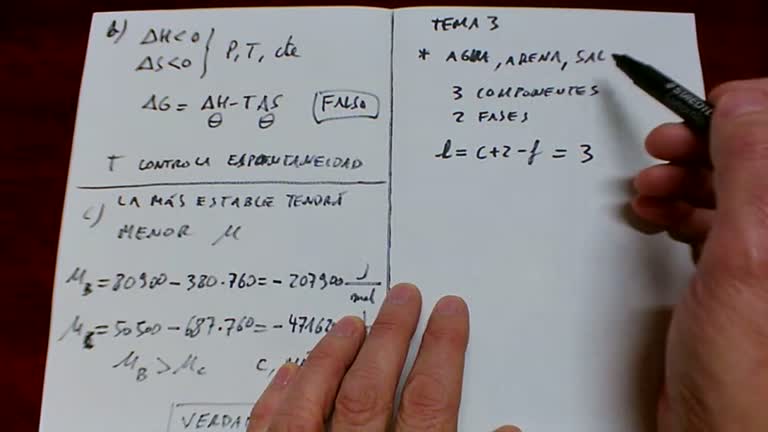 b) ΔH<0
ΔS<0 } P, T, cte
ΔG = ΔH-TΔS FALSO
⊖ ⊖
T CONTROLA ESPONTANEIDAD
c) LA MÁS ESTABLE TENDRÁ
MENOR μ
μB = 80900 - 380·760 = -207900 J/mol
μC = 50500 - 687·760 = -47162
μB > μC C,
VERDA
TEMA 3
* AGUA, ARENA, SAL
3 COMPONENTES
2 FASES
l = c+2-f = 3